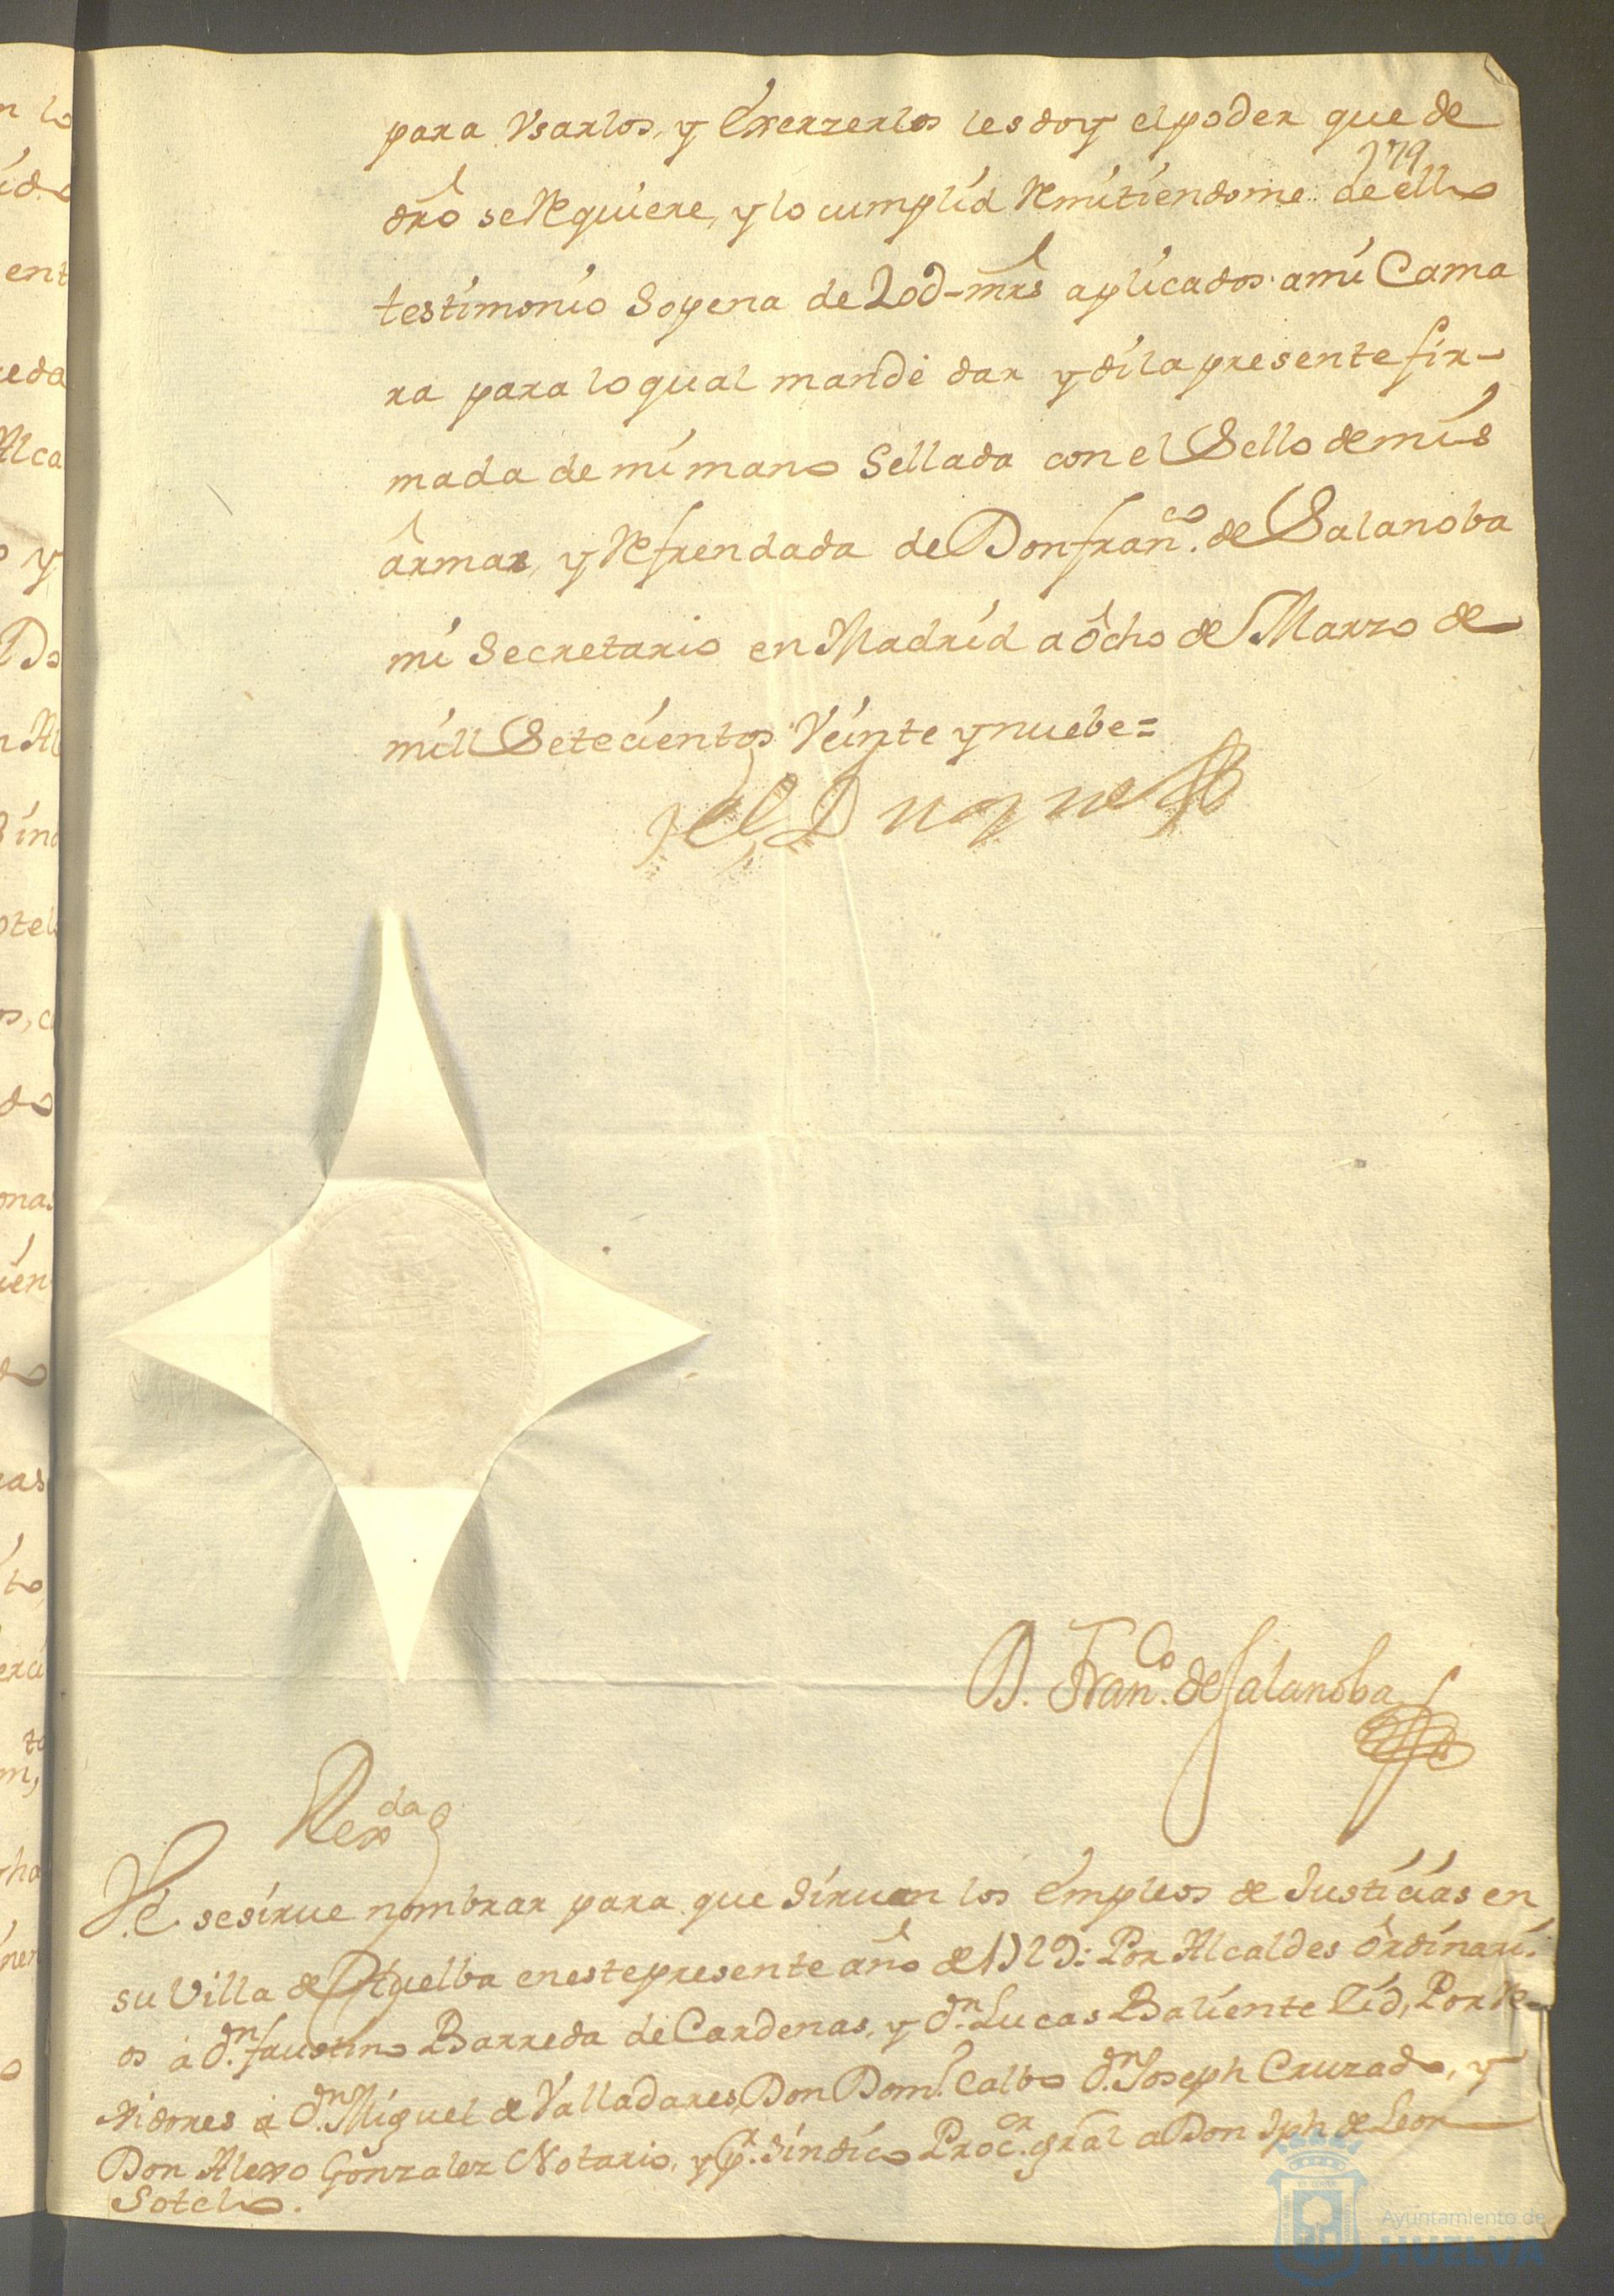 para Vsarlos, y Exerzerlos les doy el poder que de
179
dró se Requiere, y lo cumplid Remitiendome de ello
testimonio Sopena de 20d-mrs aplicados a mi Cama
ra para lo qual mandé dar y di la presente fir-
mada de mi mano Sellada con el Sello de mis
ârmas, y Refrendada de Don franco. de Salanoba
mi Secretario en Madrid a ôcho de Marzo de
mill Setecientos Veinte y nuebe=
el Duque
D. Franco. de Salanoba
Rexda
VE. se sirue nombrar para que Siruan los Empleos de Justicias en
su Villa de Huelba en este presente año de 1729: Por Alcaldes ôrdinari-
os a Dn. faustino Barreda de Cardenas, y Dn. Lucas Baliente Cid, Por Re-
xidores a Dn. Miguel de Valladares, Don Domo. Calbo Dn. Joseph Cruzado, y
Don Alexo Gonzalez Notario, y pr. Sindico Procor. gral a Don Jph de Leon
Sotelo.
Ayuntamiento de
HUELVA